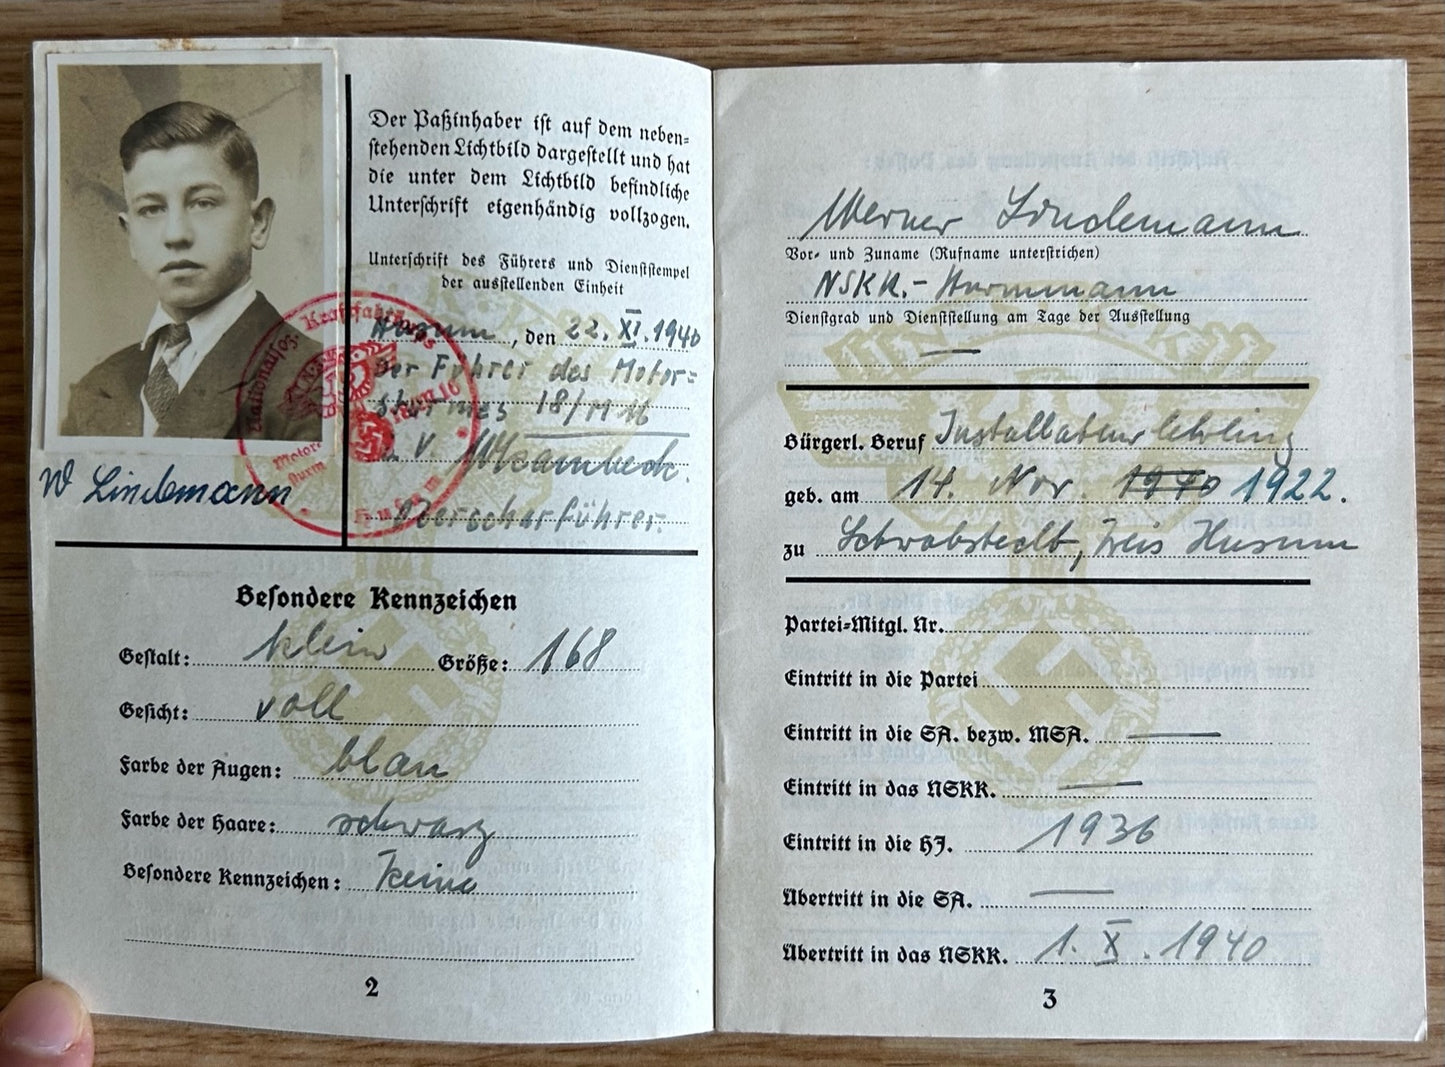 Der Paßinhaber ist auf dem neben-
stehenden Lichtbild dargestellt und hat
die unter dem Lichtbild befindliche
Unterschrift eigenhändig vollzogen.
Unterschrift des Führers und Dienststempel
der ausstellenden Einheit
Husum, den 22. XI. 1940
Der Führer des Motor-
Sturmes 18/M 16
Oberscharführer.
W Lindemann
Besondere Kennzeichen
Gestalt: klein Größe: 168
Gesicht: voll
Farbe der Augen: blau
Farbe der Haare: schwarz
Besondere Kennzeichen: Keine
2
Werner Lindemann
Vor- und Zuname (Rufname unterstrichen)
NSKK.-Sturmmann
Dienstgrad und Dienststellung am Tage der Ausstellung
—
Bürgerl. Beruf Installateurlehrling
geb. am 14. Nov. 1940 1922.
zu Schwabstedt, Kreis Husum
Partei-Mitgl. Nr.
Eintritt in die Partei
Eintritt in die SA. bezw. MSA. —
Eintritt in das NSKK. —
Eintritt in die HJ. 1936
Übertritt in die SA. —
Übertritt in das NSKK. 1. X. 1940
3